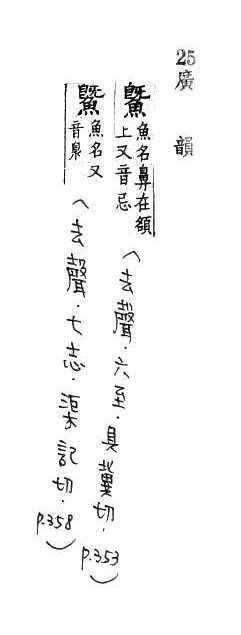 25 廣韻
鱀 魚名鼻在額
上又音忌
(去聲.六至.具冀切.p.353)
鱀 魚名又
音臮
(去聲.七志.渠記切.p.358)